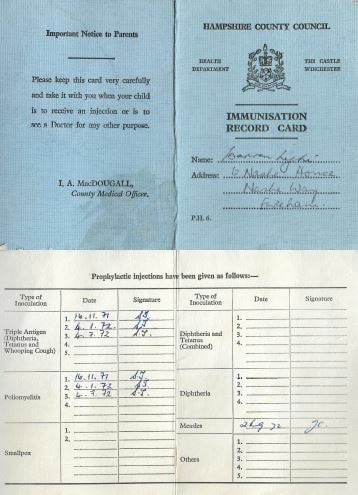 Important Notice to Parents
Please keep this card very carefully
and take it with you when your child
is to receive an injection or is to
see a Doctor for any other purpose.
I. A. MacDOUGALL,
County Medical Officer.
HAMPSHIRE COUNTY COUNCIL
HEALTH DEPARTMENT
THE CASTLE WINCHESTER
IMMUNISATION
RECORD CARD
Name:
Address: 6 Nashe House
Nashe Way
Fareham.
P.H. 6.
Prophylactic injections have been given as follows:—
Type of Inoculation Date Signature
Triple Antigen (Diphtheria, Tetanus and Whooping Cough)
1. 16.11.71
2. 4.1.72
3. 4.7.72
4.
Poliomyelitis
1. 16.11.71
2. 4.1.72
3. 4.7.72
4.
Smallpox
1.
2.
Type of Inoculation Date Signature
Diphtheria and Tetanus (Combined)
1.
2.
3.
4.
Diphtheria
1.
2.
3.
4.
Measles
Others
1.
2.
3.
4.
5.